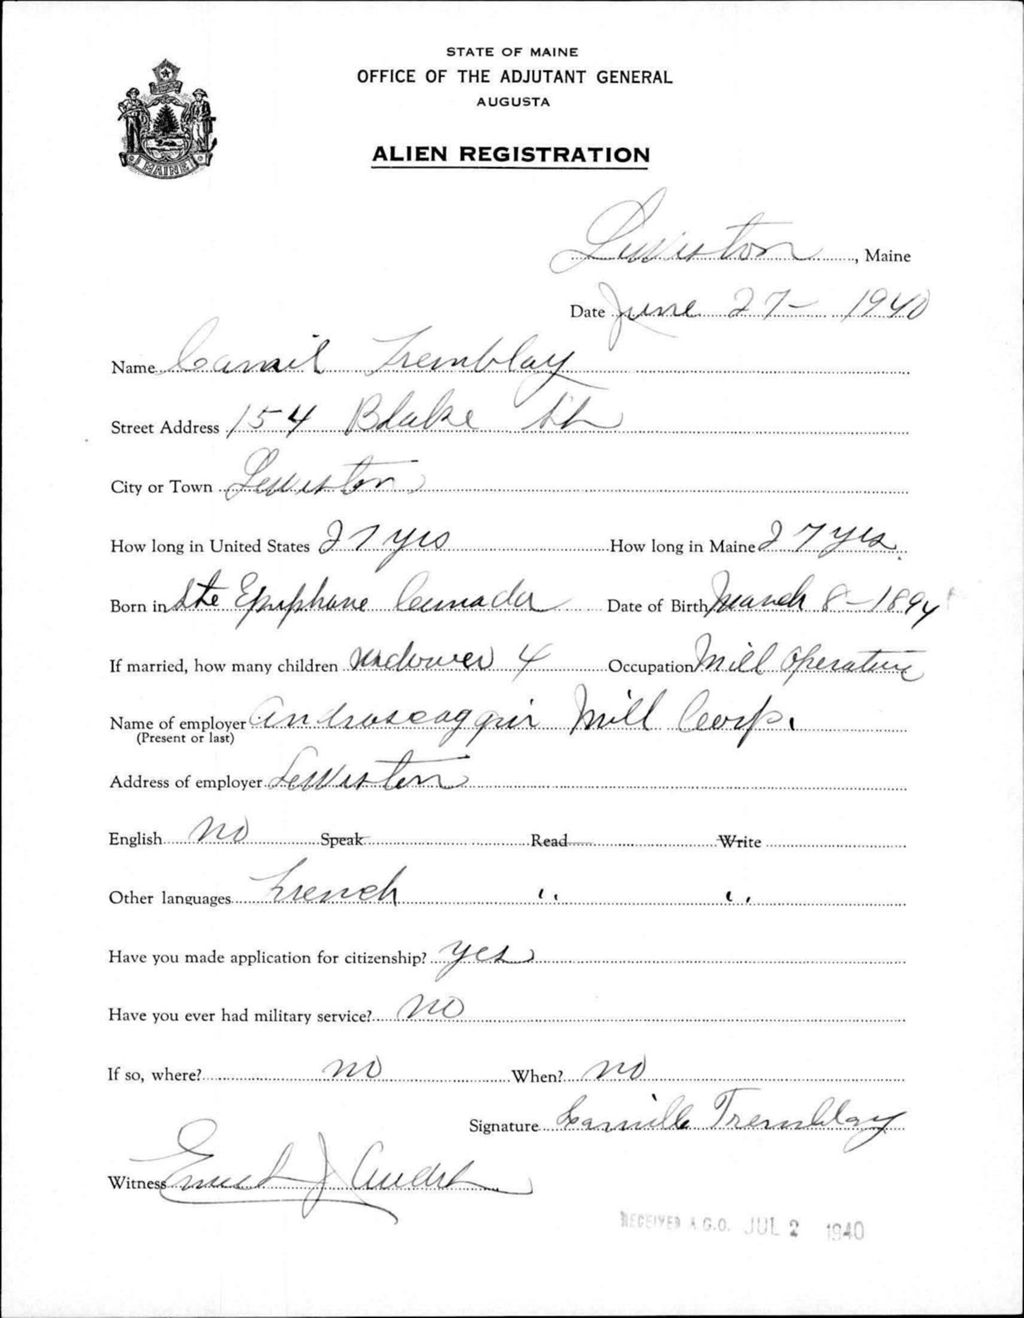 STATE OF MAINE
OFFICE OF THE ADJUTANT GENERAL
AUGUSTA
MAINE
ALIEN REGISTRATION
Lewiston, Maine
Date June 27 - 1940
Name Camil Tremblay
Street Address 154 Blake St
City or Town Lewiston
How long in United States 27 yrs How long in Maine 27 yrs
Born in Ste Epiphane Canada Date of Birth March 8 - 1894
If married, how many children widower 4 Occupation Mill Operative
Name of employer Androscoggin Mill Corp.
(Present or last)
Address of employer Lewiston
English No Speak Read Write
Other languages French " "
Have you made application for citizenship? Yes
Have you ever had military service? No
If so, where? no When? no
Signature Camille Tremblay
Witness J
RECEIVED A.G.O. JUL 2 1940